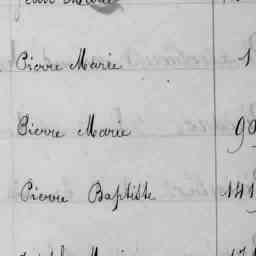 Pierre Marie 1
Pierre Marie 99
Pierre Baptiste 141